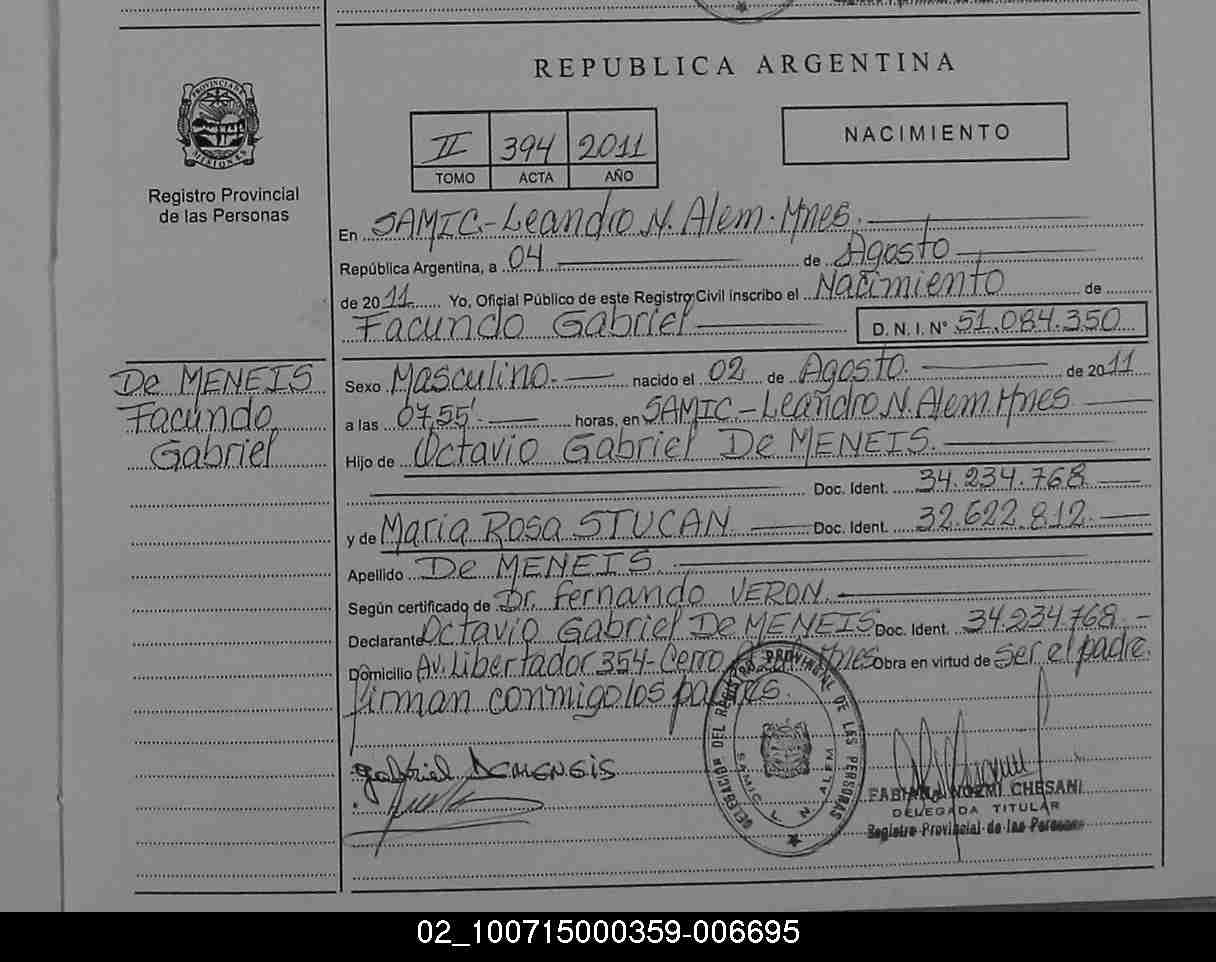 REPUBLICA ARGENTINA
PROVINCIA DE MISIONES
Registro Provincial
de las Personas
II 394 2011
TOMO ACTA AÑO
NACIMIENTO
En SAMIC-Leandro N. Alem. Mnes.
República Argentina, a 04 de Agosto
de 2011 Yo, Oficial Público de este Registro Civil inscribo el Nacimiento de
Facundo Gabriel D. N. I. N° 51.084.350
De MENEIS
Facundo
Gabriel
Sexo Masculino.- nacido el 02 de Agosto. de 2011
a las 07,55'.- horas, en SAMIC-Leandro N. Alem. Mnes
Hijo de Octavio Gabriel De MENEIS.
Doc. Ident. 34.234.768
y de Maria Rosa STUCAN Doc. Ident. 32.622.812.
Apellido De MENEIS.
Según certificado de Dr. Fernando VERON.
Declarante Octavio Gabriel De MENEIS Doc. Ident. 34.234.768.-
Domicilio Av. Libertador 354-Cerro Mnes Obra en virtud de ser el padre.
firman conmigo los padres.
gabriel DEMENEIS
DELEGACION DEL REGISTRO PROVINCIAL DE LAS PERSONAS
SAMIC L. N. ALEM
FABIANA NOEMI CHESANI
DELEGADA TITULAR
Registro Provincial de las Personas
02_100715000359-006695